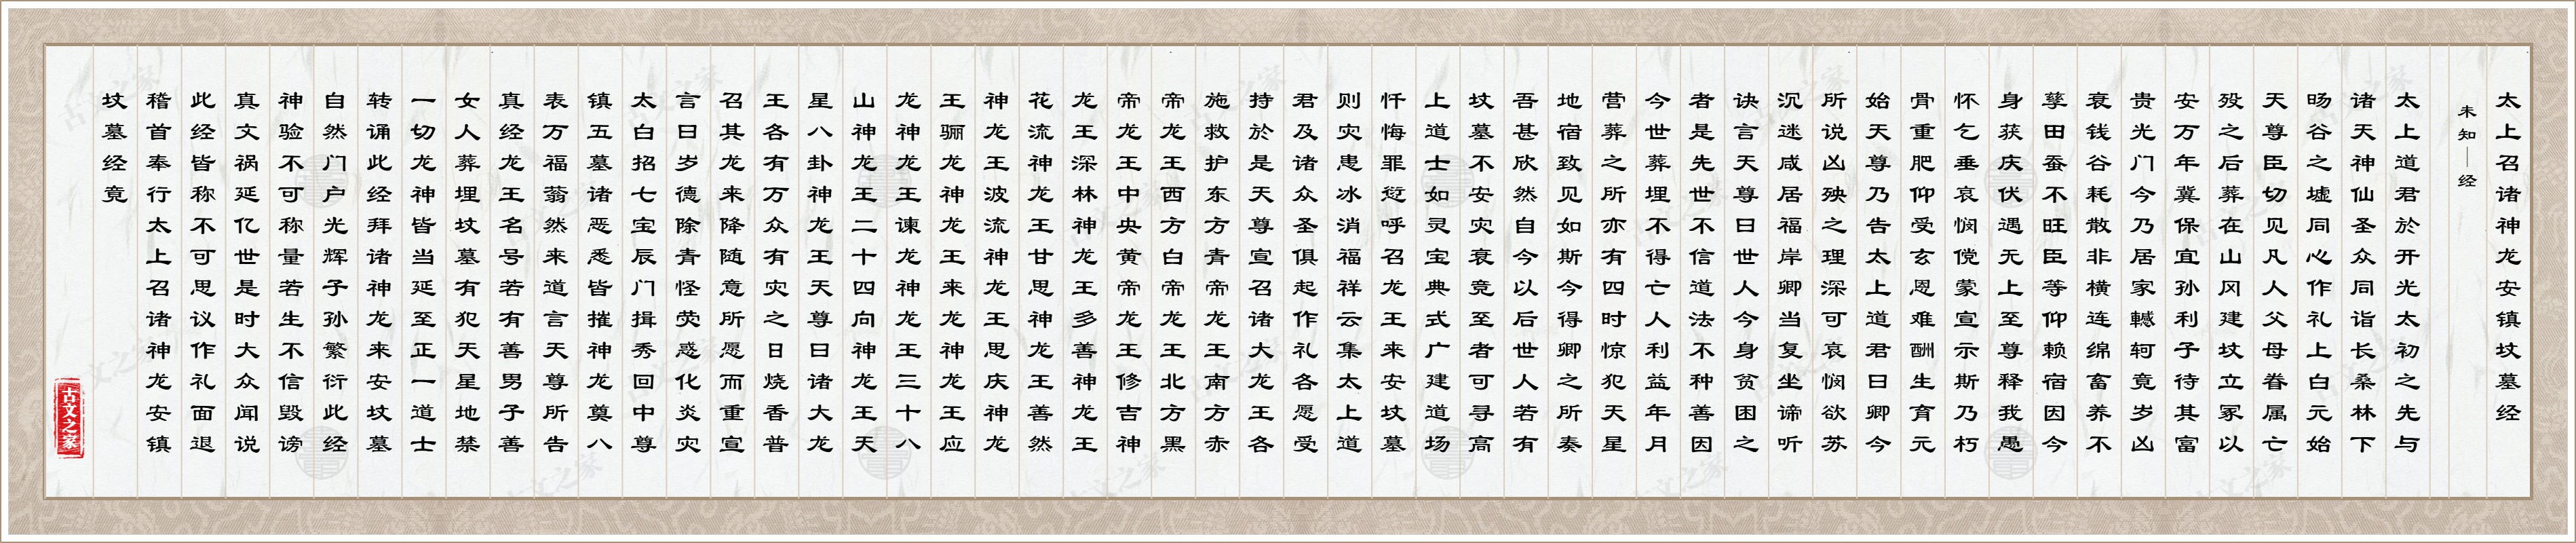 太上召诸神龙安镇坟墓经
未知—经
太上道君於开光太初之先与
诸天神仙圣众同诣长桑林下
旸谷之墟同心作礼上白元始
天尊臣切见凡人父母眷属亡
殁之后葬在山冈建坟立冢以
安万年冀保宜孙利子待其富
贵光门今乃居家轗轲竟岁凶
衰钱谷耗散非横连绵畜养不
孳田蚕不旺臣等仰赖宿因今
身获庆伏遇无上至尊释我愚
怀乞垂哀悯傥蒙宣示斯乃朽
骨重肥仰受玄恩难酬生育元
始天尊乃告太上道君曰卿今
所说凶殃之理深可哀悯欲苏
沉迷咸居福岸卿当复坐谛听
诀言天尊曰世人今身贫困之
者是先世不信道法不种善因
今世葬埋不得亡人利益年月
营葬之所亦有四时惊犯天星
地宿致见如斯今得卿之所奏
吾甚欣然自今以后世人若有
坟墓不安灾衰竞至者可寻高
上道士如灵宝典式广建道场
忏悔罪愆呼召龙王来安坟墓
则灾患冰消福祥云集太上道
君及诸众圣俱起作礼各愿受
持於是天尊宣召诸大龙王各
施救护东方青帝龙王南方赤
帝龙王西方白帝龙王北方黑
帝龙王中央黄帝龙王修吉神
龙王深林神龙王多善神龙王
花流神龙王甘思神龙王善然
神龙王波流神龙王思庆神龙
王骊龙神龙王来龙神龙王应
龙神龙王谏龙神龙王三十八
山神龙王二十四向神龙王天
星八卦神龙王天尊曰诸大龙
王各有万众有灾之日烧香普
召其龙来降随意所愿而重宣
言曰岁德除青怪荧惑化炎灾
太白招七宝辰门揖秀回中尊
镇五墓诸恶悉皆摧神龙奠八
表万福蓊然来道言天尊所告
真经龙王名号若有善男子善
女人葬埋坟墓有犯天星地禁
一切龙神皆当延至正一道士
转诵此经拜诸神龙来安坟墓
自然门户光辉子孙繁衍此经
神验不可称量若生不信毁谤
真文祸延亿世是时大众闻说
此经皆称不可思议作礼面退
稽首奉行太上召诸神龙安镇
坟墓经竟
古文之家